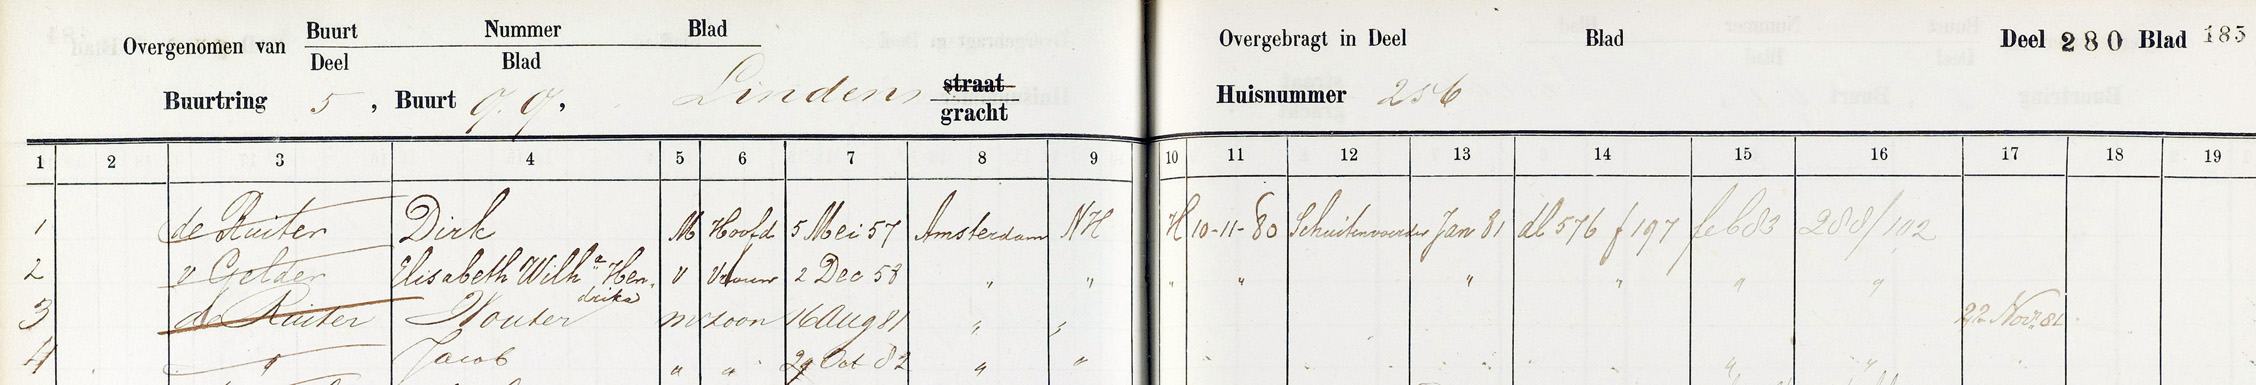 Overgenomen van Buurt Nummer Blad
Deel Blad
Overgebragt in Deel Blad Deel 280 Blad 185
Buurtring 5, Buurt q.q, Lindens straat
gracht
Huisnummer 256
1 2 3 4 5 6 7 8 9 10 11 12 13 14 15 16 17 18 19
1 de Ruiter Dirk M Hoofd 5 Mei 57 Amsterdam NH H 10-11-80 Schuitenvoerder Jan 81 dl 576 f 197 feb 83 288/102
2 v Gelder Elisabeth Wilh.a Hen- V Vrouw 2 Dec 58 " " " " " " " "
drika
3 de Ruiter Wouter m zoon 16 Aug 81 " " 22 Nov. 81
4 " Jacob " " 29 Oct 82 " " " "